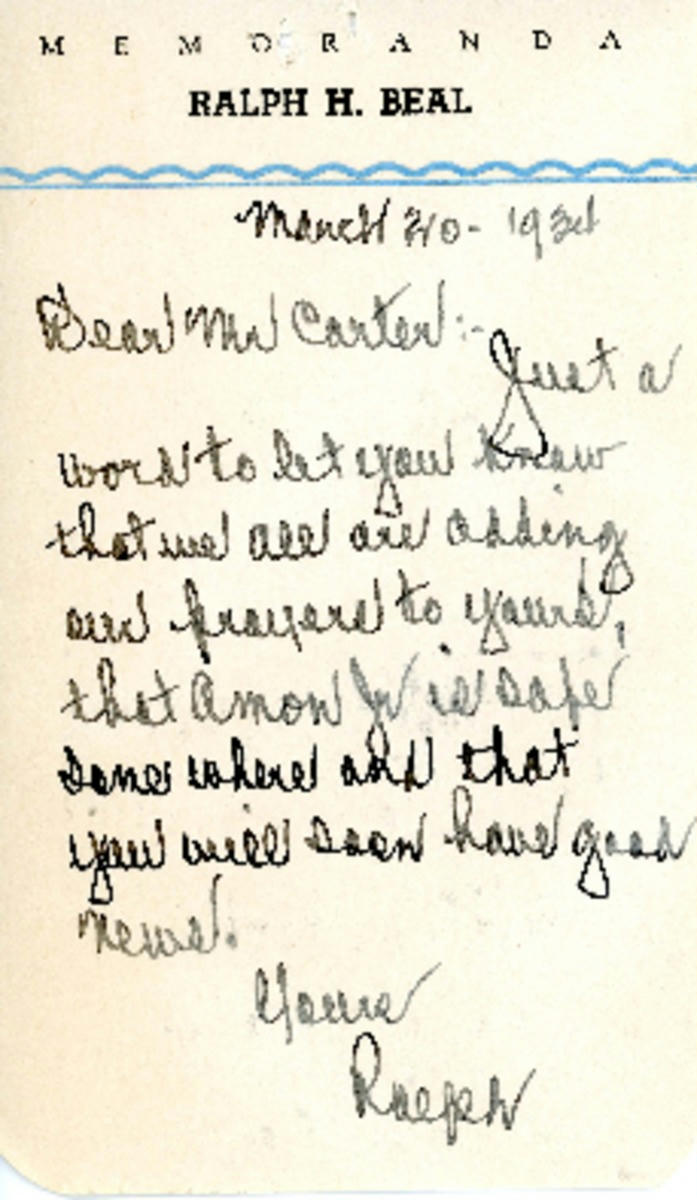 MEMORANDA
RALPH H. BEAL
March 20-
Dear Mr Carter:-
Just a
word to let you know
that we all are adding
our prayers to yours,
that Amon Jr is safe
some where and that
you will soon have good
news.
Yours
Ralph